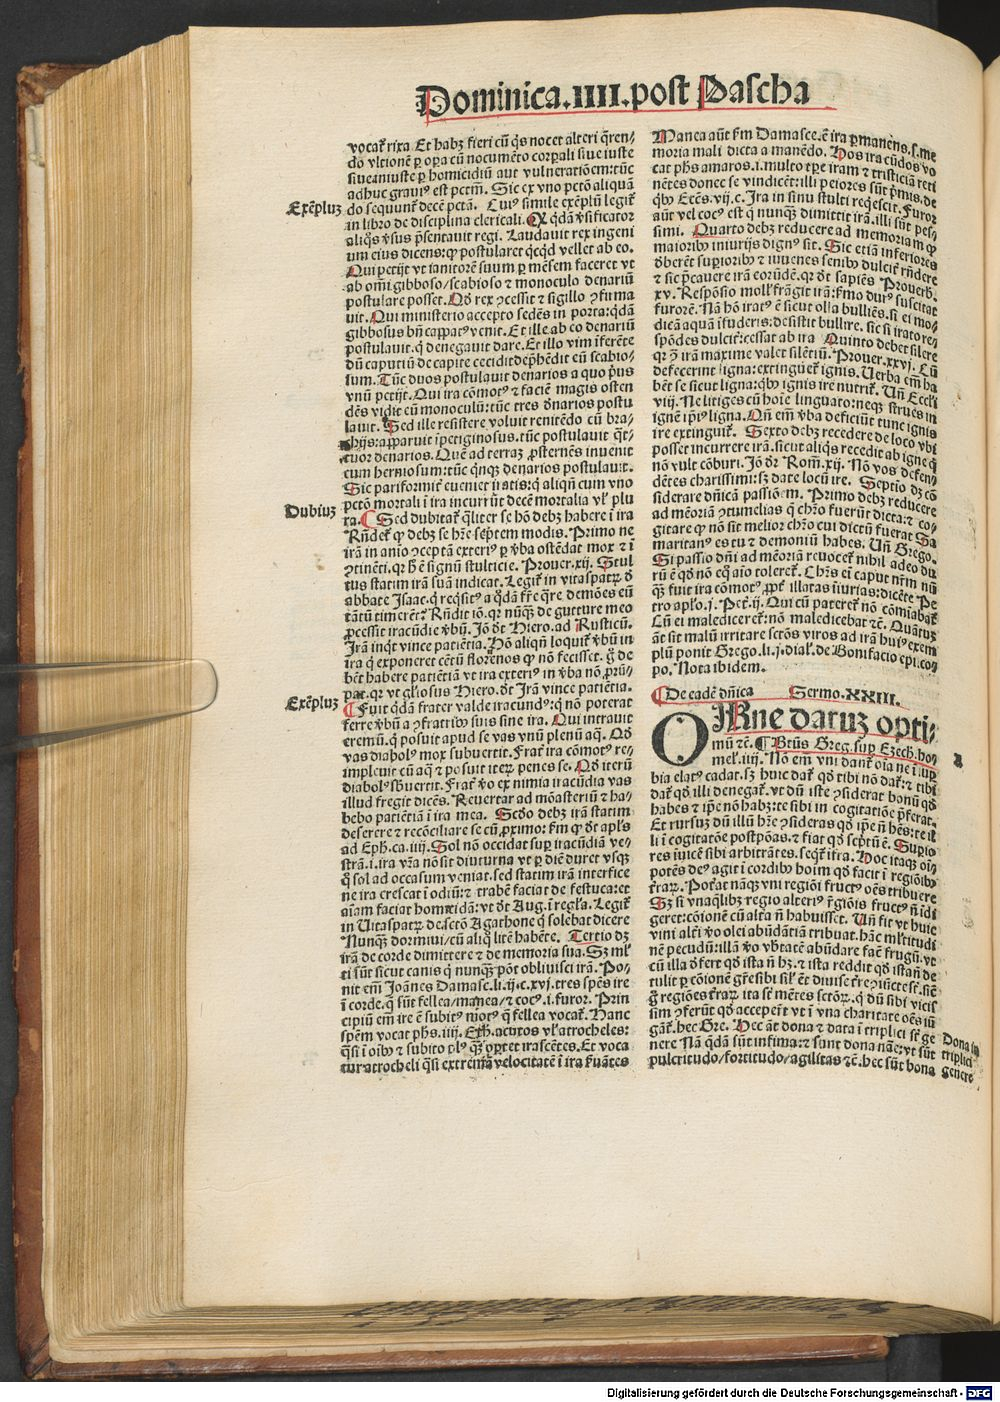 Dominica.IIII.post Pascha
vocat̄ rixa Et habꝫ fieri cū q̄s nocet alteri q̄ren-
do vltionē ꝑ oꝑa cū nocumēto corꝑali siue iuste
siue aniuste ꝑ homicidiū aut vulnerationem: tūc
adhuc grauiꝰ est pctm̄. Sic ex vno pctō aliquā
Exēpluꝫ
do sequunt̄ decē pctā. Cuiꝰ simile exēplū legit̄
in libro de disciplina clericali. Q̇ q̇dā v̓sificator
aliq̄s v̓sus p̄sentauit regi. Laudauit rex ingeni
um eius dicens: ꝙ postularet q̇cq̇d vellet ab eo.
Qui petijt vt ianitorē suum ꝑ mēsem faceret vt
ab om̄i gibboso/scabioso ⁊ monoculo denariū
postulare posset. Qd̓ rex ꝯcessit ⁊ sigillo ꝯfirma
uit. Qui ministerio accepto sedēs in porta: q̇dā
gibbosus bn̄ cappatꝰ venit. Et ille ab eo denariū
postulauit. q̇ denegauit dare. Et illo vim īferēte
dū caputiū de capite cecidit dep̄hēdit eū scabio-
sum. Tūc duos postulauit denarios a quo pͥus
vnū petijt. Qui ira cōmotꝰ ⁊ faciē magis osten
dēs vidit eū monoculū: tūc tres d̓narios postu
lauit. Sed ille resistere voluit renitēdo cū bra-
chijs: apparuit īpetiginosus. tūc postulauit q̄t-
tuor denarios. Quē ad terraꝫ ꝓsternēs inuenit
eum herniosum: tūc q̇nqꝫ denarios postulauit.
Sic pariformit̓ eueniet iratis: q̇ aliqn̄ cum vno
pctō mortali ī ira incurrūt decē mortalia vl̓ plu
Dubiuꝫ
ra. ¶ Sed dubitat̄ q̄liter se hō debꝫ habere ī ira
Rn̄det̄ ꝙ debꝫ se hr̄e septem modis. Primo ne
irā in aīo ꝯceptā exteriꝰ ꝑ v̓ba ostēdat mox ⁊ ī
ꝯtinēti. qꝛ h̓ ē signū stulticie. Prouer. xij. Stul
tus statim irā suā indicat. Legit̄ in vitaspatꝝ d̓
abbate Isaac. q̇ reqͥsitꝰ a q̇dā fr̄e q̄re demōes eū
tātū timerēt? Rn̄dit iō. qꝛ nūqꝫ de gutture meo
ꝓcessit iracūdie v̓bū. Jō dt̄ Hiero. ad Rusticū.
Irā inq̇t vince patiētia. Hō aliqn̄ loquit̄ v̓bū in
ira q̇ exponeret cētū florenos ꝙ nō fecisset. g̓ de
bēt habere patiētiā vt ira exteriꝰ in v̓ba nō ꝓrū-
pat. qꝛ vt gl̓iosus Hiero. dt̄ Irā vince patiētia.
Exēpluꝫ
¶ Fuit q̇dā frater valde iracundꝰ: q̇ nō poterat
ferre v̓bū a ꝯfratribꝰ suis sine ira. Qui intrauit
eremū. q̇ posuit apud se vas vnū plenū aq̄. Qd̓
vas diabolꝰ mox subuertit. Frat̓ ira cōmotꝰ re-
impleuit eū aq̄ ⁊ posuit iteꝝ penes se. Qd̓ iterū
diabolꝰ sb̓uertit. Frat̓ v̓o ex nimia iracūdia vas
illud fregit dicēs. Reuertar ad mōasteriū ⁊ ha-
bebo patiētiā ī ira mea. Scd̓o debꝫ irā statim
deserere ⁊ recōciliare se cū ꝓximo: fm̄ ꝙ dt̄ apl̓s
ad Eph̓. ca. iiij. Sol nō occidat suꝑ iracūdiā ve-
strā. i. ira vr̄a nō sit diuturna vt ꝑ diē duret vsqꝫ
q̊ sol ad occasum veniat. sed statim irā interfice
ne ira crescat ī odiū: ⁊ trabē faciat de festuca: et
aīam faciat homicidā: vt dt̄ Aug. ī regl̓a. Legit̄
in Uitaspatꝝ de sctō Agathone q̇ solebat dicere
Nunqꝫ dormiui/cū aliq̊ litē habēte. Tertio dꝫ
irā de corde dimittere ⁊ de memoria sua. Sꝫ ml̓
ti sūt sicut canis q̇ nunqꝫ pōt obliuisci irā. Po-
nit em̄ Joānes Damasc. li. ij. c. xvj. tres spēs ire
ī corde. q̄ sūt fellea/manea/⁊ cocꝰ. i. furor. Prin
cipiū em̄ ire ē subitꝰ motꝰ q̄ fellea vocat̄. Hanc
spēm vocat ph̓s. iiij. Eth̓. acutos vl̓ atrocheles:
q̄si ī oībꝰ ⁊ subito plꝰ qꝫ oꝑtet irascētes. Et voca
tur atrocheli q̄si extremā velocitatē ī ira p̄uātes
Manea aūt fm̄ Damasce. ē ira ꝑmanēns. s. me
moria mali dicta a manēdo. Hos iracūdos vo
cat ph̓s amaros. i. multo tꝑe iram ⁊ tristiciā reti
nētes donec se vindicēt: illi peiores sūt pͥmis. de
qͥbꝰ Eccs̄. vij. c. Ira in sinu stulti reqͥescit. Furor
aūt vel cocꝰ est q̇ nunqꝫ dimittit irā. illi sūt pes-
simi. Quarto debꝫ reducere ad memoriam ꝙ
maioribꝰ iniurijs dignꝰ sit. Sic etiā inferiores
d̓berēt suꝑioribꝰ ⁊ iuuenes senibꝰ dulcit̓ rn̄dere
⁊ sic p̄cauere irā eorūdē. qꝛ dt̄ sapiēs Prouerb̓.
xv. Respōsio moll̓ frāgit irā: s̓mo durꝰ suscitat
furorē. Nā hō iratꝰ ē sicut olla bulliēs. si ei mo-
dicā aquā īfuderis: desistit bullire. sic si irato re-
spōdes dulcit̓: cessat ab ira Quinto debet silere
qꝛ ꝯ irā maxime valet silētiū. Prouer. xxvj. Cū
defecerint ligna: extinguet̄ ignis. Uerba em̄ ha
bēt se sicut ligna: qͥbꝰ ignis ire nutrit̄. Un̄ Eccl̓i
viij. Ne litiges cū hoīe linguato: neqꝫ strues in
ignē ip̄iꝰ ligna. Qn̄ em̄ v̓ba deficiūt tunc ignis
ire extinguit̄. Sexto debꝫ recedere de loco vbi
posset incurrere irā. sicut aliq̇s recedit ab igne q̇
nō vult cōburi. Jō dr̄ Rom̄. xij. Nō vos defen-
dētes charissimi: sꝫ date locū ire. Septīo dꝫ cō
siderare dn̄icā passiōem. Primo debꝫ reducere
ad mēoriā ꝯtumelias q̄ chr̄o fuerūt dicta: ⁊ co-
gitare ꝙ nō sit melior chr̄o cui dictū fuerat Sa
maritanꝰ es tu ⁊ demoniū habes. Un̄ Grego.
Si passio dn̄i ad mēoriam reuocet̄ nihil adeo du
rū ē qd̓ nō eq̊ aīo toleret̄. Chr̄s ei caput nr̄m nū
qꝫ fuit ira cōmotꝰ ꝓpt̓ illatas iniurias: dicēte Pe
tro apl̓o. j. Pet̓. ij. Qui cū pateret̄ nō cōmīabat̄
Cū ei malediceret̄: nō maledicebat ⁊c̄. Quātuꝫ
āt sit malū irritare sctōs viros ad irā huiꝰ exem
plū ponit Grego. li. j. dial̓. de Bonifacio ep̄i. co-
po. Nota ibidem.
¶ De eadē dn̄ica Sermo. XXIII.
OMne datuꝫ opti-
mū ⁊c̄. ¶ Bt̄us Greg. suꝑ Ezech. ho-
mel̓. iiij. Nō em̄ vni dant̄ oīa ne ī suꝑ
bia elatꝰ cadat. sꝫ huic dat̄ qd̓ tibi nō dat̄: ⁊ tibi
dat̄ qd̓ illi denegat̄. vt dū iste ꝯsiderat bonū qd̓
habes ⁊ ip̄e nō habꝫ: te sibi in cogitatiōe p̄ferat.
Et rursuꝫ dū illū hr̄e ꝯsideras qd̓ ip̄e n̄ hēs: te il
li ī cogitatōe postpōas. ⁊ fiat qd̓ sc̄ptū ē. Suꝑio
res iuicē sibi arbitrātes. seq̇t̄ ifra. Hoc itaqꝫ oī-
potēs deꝰ agit ī cordibꝰ hoīm qd̓ facit ī regiōibꝰ
t̓raꝝ. Pot̓at nāqꝫ vni regiōi fructꝰ oēs tribuere
Sꝫ si vnaq̄libꝫ regio alteriꝰ r̓giōis fructꝰ n̄ īdi
geret: cōionē cū alt̓a n̄ habuisset. Un̄ fit vt huic
vini alt̓i v̓o olei abūdātiā tribuat. hāc ml̓titudi
nē pecudū: illā v̓o vb̓tatē abūdare faē frugū. vt
cū illa d̓fert qd̓ ista n̄ hꝫ. ⁊ ista reddit qd̓ ista n̄ de
tulit ꝑ cōionē gr̄e sibi sil̓ ēt diuise t̓re ꝯiūcte st̄. sic̄
g̓ regiōes t̓raꝝ ita st̄ mētes sctōꝝ. q̇ dū sibi vicis
sim ꝯferūt qd̓ acceper̄t vt ī vna charitate oēs iū
gāt̄. hec Gre. Hec āt dona ⁊ data ī triplici st̄ ge
nere Nā q̇dā sūt infima: ⁊ sunt dona nāe: vt sūt
pulcritudo/fortitudo/agilitas ⁊c̄. hec sūt bona
Dona in
triplici
genere
Digitalisierung gefördert durch die Deutsche Forschungsgemeinschaft - DFG